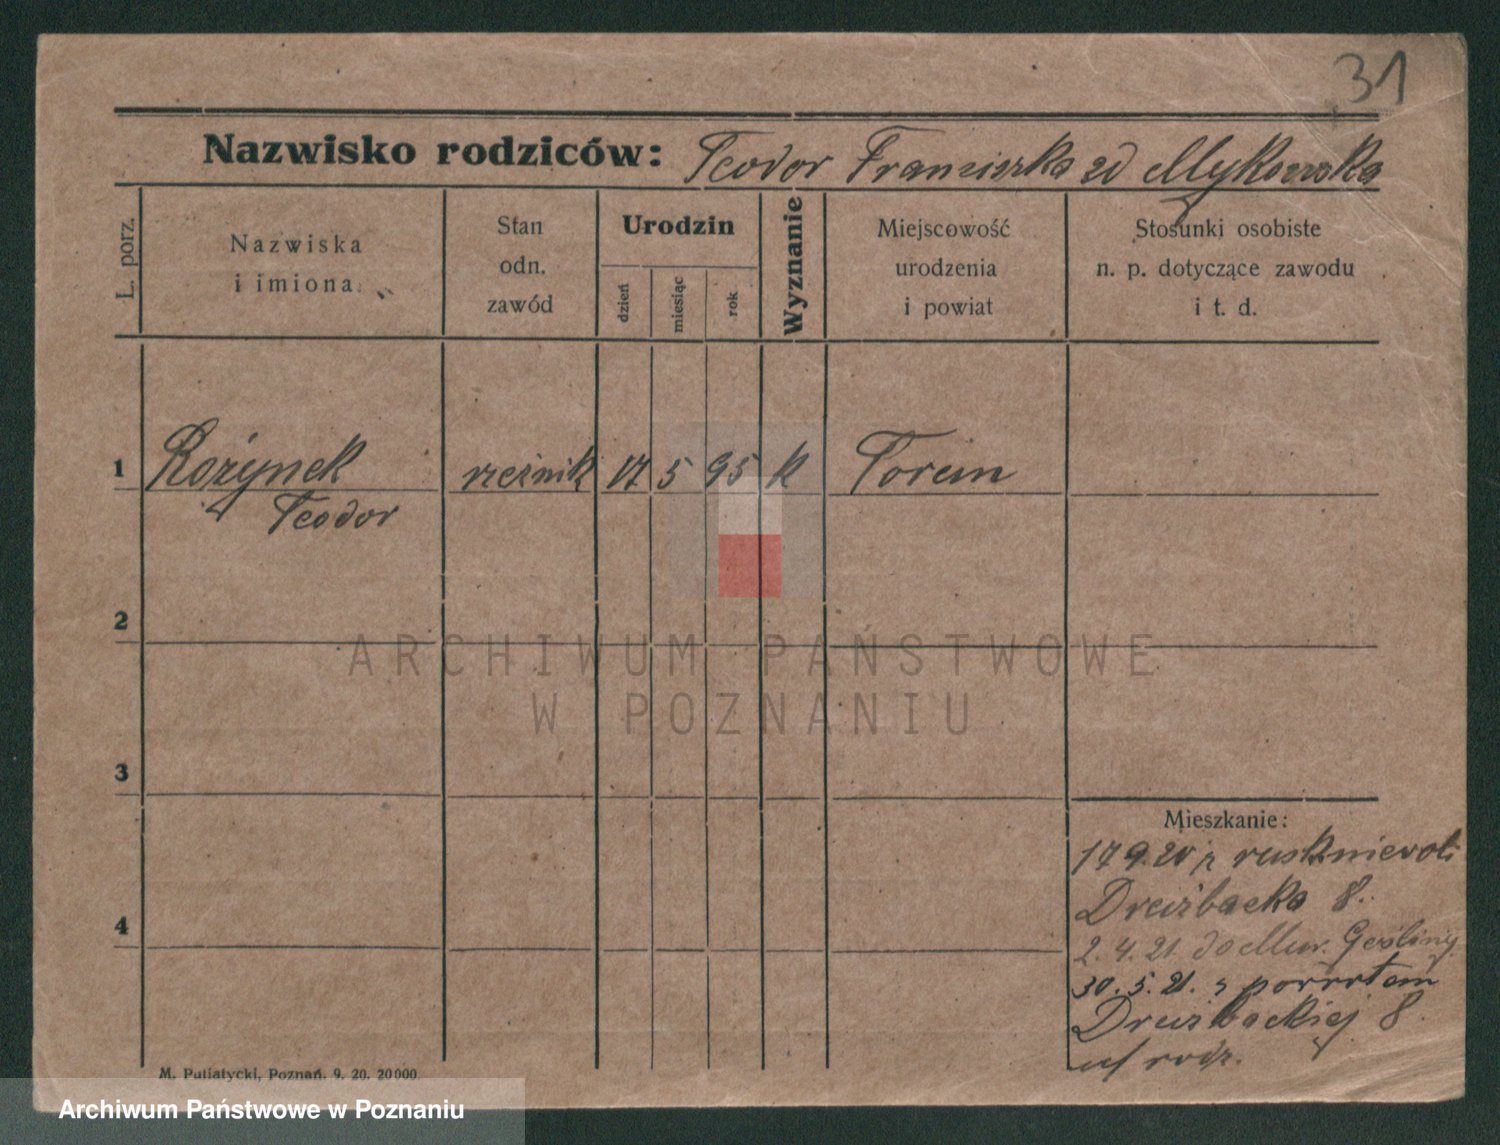 31
Nazwisko rodziców: Teodor Franciszka zd Mykowska
L. porz.
Nazwiska
i imiona
Stan
odn.
zawód
Urodzin
dzień
miesiąc
rok
Wyznanie
Miejscowość
urodzenia
i powiat
Stosunki osobiste
n. p. dotyczące zawodu
i t. d.
1 Rożynek rzeźnik 17 5 95 k Toruń
Teodor
2
ARCHIWUM PAŃSTWOWE
W POZNANIU
3
Mieszkanie:
17 9.20 z
8.
4
2. 4. 21. do Mur. Gośliny
30. 5. 21. z powrotem
8.
rodz.
M. Putiatycki, Poznań. 9. 20. 20000.
Archiwum Państwowe w Poznaniu